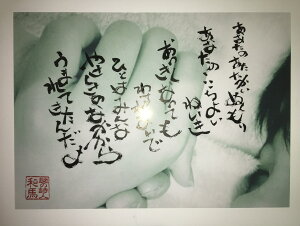 あなたのあたたかいぬくもり
あなたのここちよい
ねいき
おおきくなっても
わすれないで
ひとはみんな
やさしさのなかから
うまれて
きたんだよ
和馬